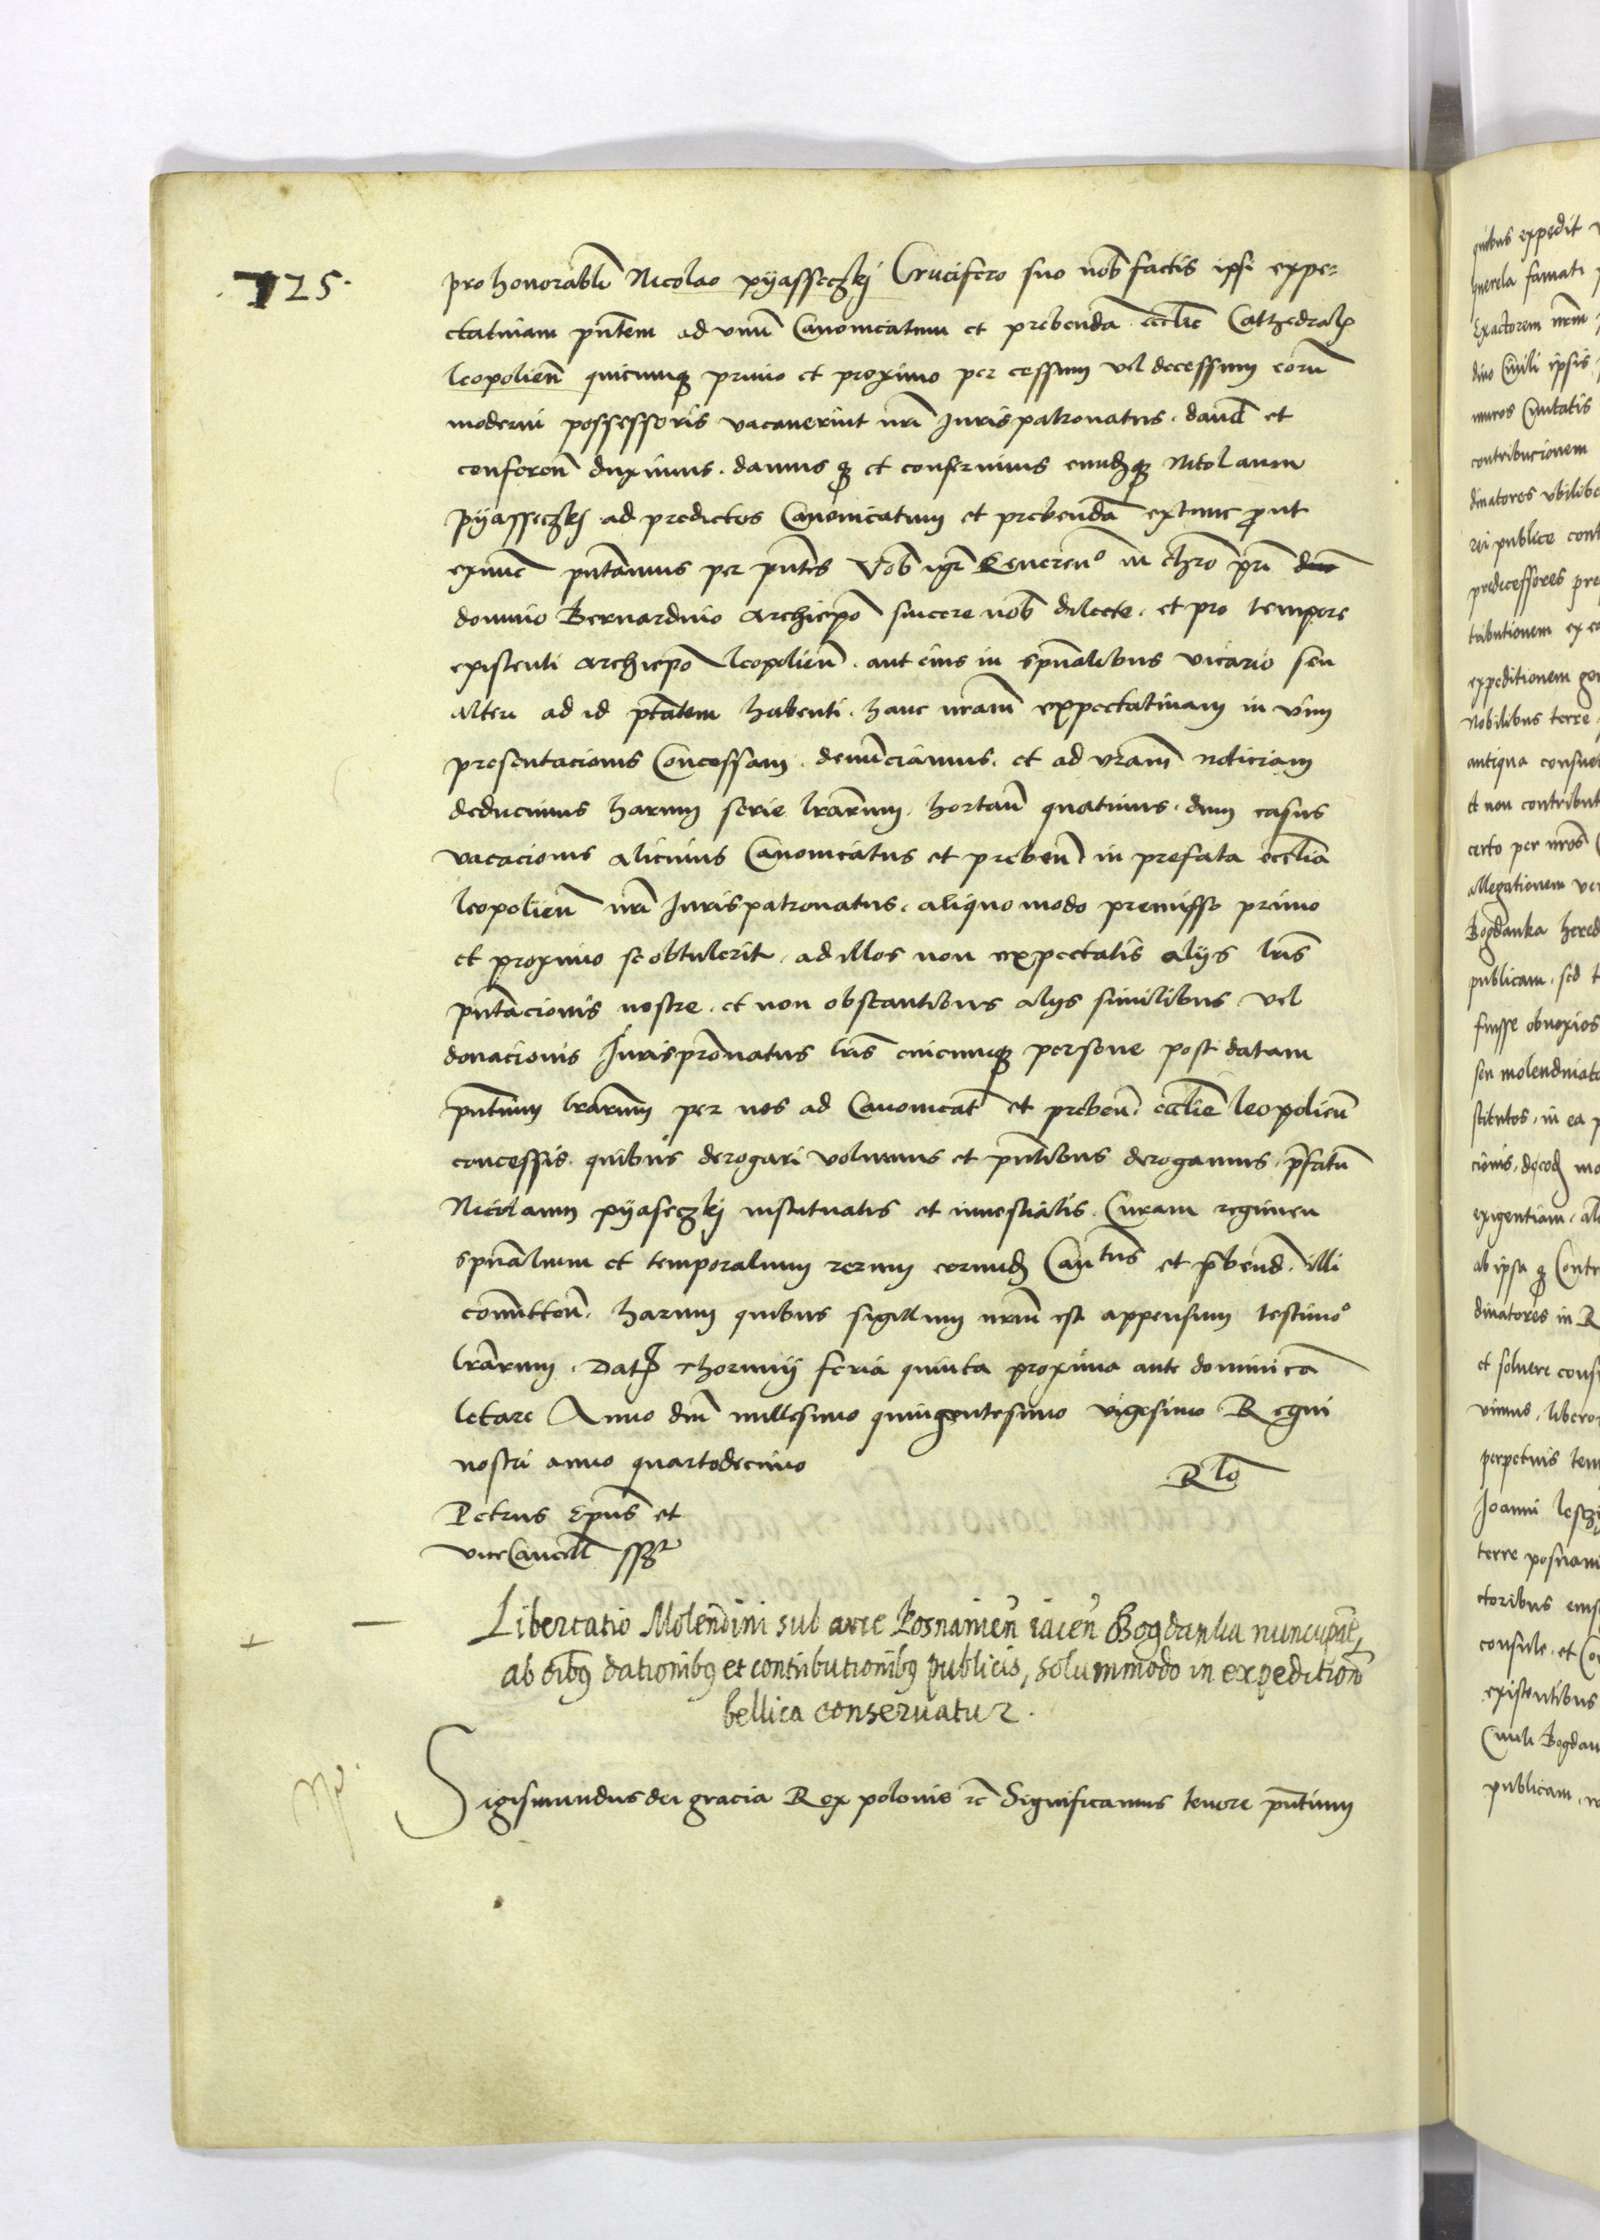 725.
pro honorabli Nicolao pyasseczkj Crucifero suo nob factis ipsi expe=
ctatiuam pntem ad vnu Canonicatum et prebenda ecclie Cathedral
leopolien quicunq primo et proximo per cessum vel decessum eoru
moderni possessoris vacauerint nri Jurispatronatus. dand et
conferen duximus. damus q et conferimus eundq Nicolaum
pyasseczkj ad predictos Canonicatum et prebenda extunc put
exnuc pntamus per pntes Vob igr Reueren° in chro pri
domino Bernardino archiepo sincere nob dilecte. et pro tempore
existenti archiepo leopolien. aut eius in spualibus vicario seu
alteri ad id ptatem habenti. hanc nram expectatiuam in vim
presentacionis Concessam. denuciamus. et ad vram noticiam
deducimus harum serie lrarum. hortan quatinus. dum casus
vacacionis alicuius Canonicatus et preben in prefata ecclia
leopolien nri Jurispatronatus. aliquo modo premisso primo
et proximo se obtulerit. ad illos non expectatis alijs lris
pntacionis nostre. et non obstantibus alijs similibus vel
donacionis Jurispronatus lris cuicunq persone post datam
pntium lrarum per nos ad Canonicat et preben. ecclie leopolien
concessis. quibus derogari volumus et pntibus derogamus. pfatu
Nicolaum pyaseczkj instituatis et inuestiatis. Curam regimen
spualium et temporalium rerum eorund Cantus et pbend. illi
comitten. harum quibus sigillum nrm est appensum testimo°
lrarum. Dat Thorunij feria quinta proxima ante dominica
letare Anno dni millesimo quingentesimo vigesimo Regni
nostri anno quartodecimo
Rlo
Petrus Epus et
viceCancell sszt
Libertatio Molendini sub arce Posnanien iacen Bogdanka nuncupat,
ab oibus dationibus et contributionibus publicis, solummodo in expedition
bellica conseruatur.
Sigismundus dei gracia Rex polonie rc Significamus tenore pntium
quibus expedit
querela famati
Exactorem nrm
diuo Ciuili ipsis
muros Ciuitatis
contribucionem
dinatores vbilibe
rei publice cont
predecessores pre
tributionem ex ea
expeditionem gen
Nobilibus terre
antiqua consue
et non contribut
certo per nros
allegationem ve
Bogdanka hered
publicam. sed
fuisse obnoxios
seu molendinato
stitutos. in ea
cionis. de eod mo
exigentiam. al
ab ipsa q Contr
dinatores in R
et soluere cons
vimus. liberos
perpetuis tem
Joanni lesczi
terre posnani
ctoribus eius
consule. et Co
existentibus
Ciuili Bogdan
publicam.